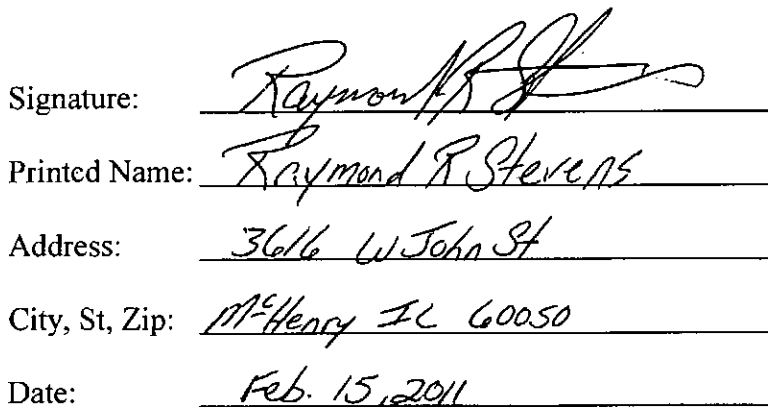 Signature: Raymond R St
Printed Name: Raymond R Stevens
Address: 3616 W John St
City, St, Zip: McHenry IL 60050
Date: Feb. 15, 2011